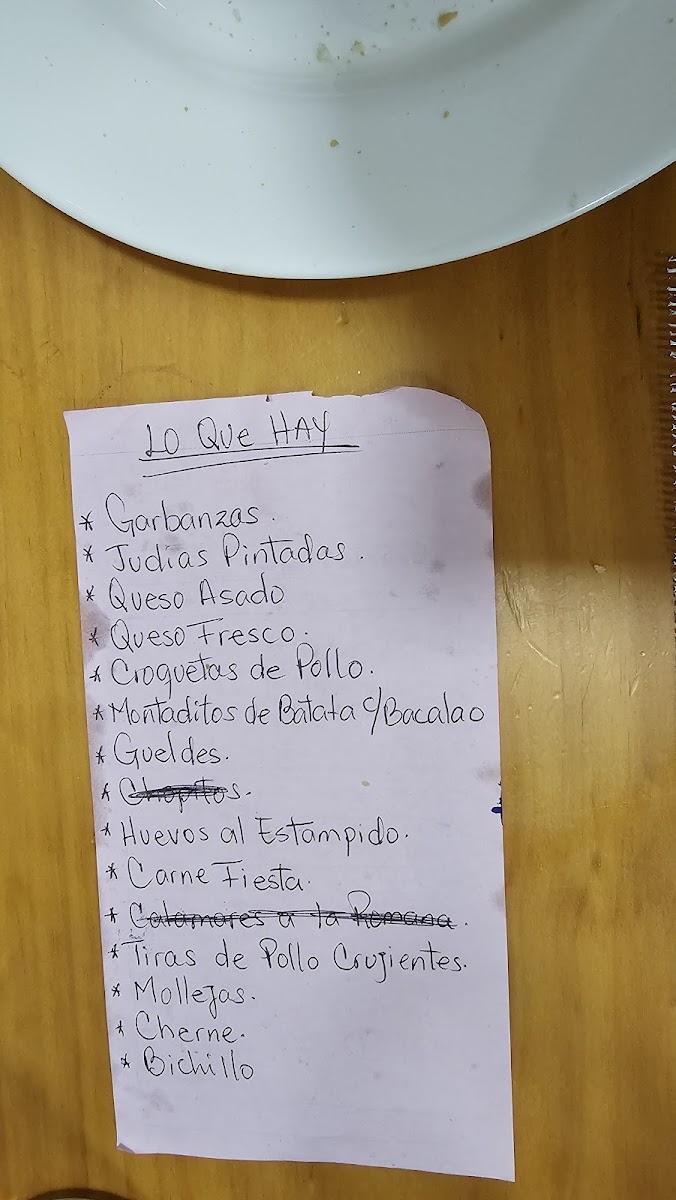 LO QUE HAY
* Garbanzas.
* Judias Pintadas.
* Queso Asado
* Queso Fresco.
* Croquetas de Pollo.
* Montaditos de Batata c/Bacalao
* Gueldes.
* Chopitos.
* Huevos al Estampido.
* Carne Fiesta.
* Calamares a la Romana.
* Tiras de Pollo Crujientes.
* Mollejas.
* Cherne.
* Bichillo